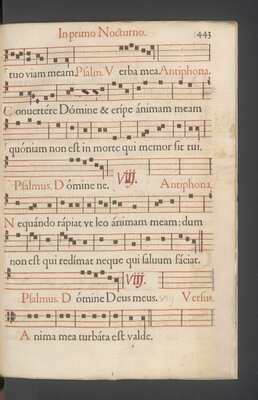 In primo Nocturno. 443
tuo viam meam. Psalm. V erba mea. Antiphona.
Conuertére Dómine & eripe ánimam meam
quóniam non est in morte qui memor sit tui.
VIIJ.
Psalmus. D ómine ne. Antiphona.
Nequándo rápiat ve leo ánimam meam; dum
non est qui redimat neque qui saluum fáciat.
VIIJ.
Psalmus. D ómine Deus meus. VIIJ Versus.
A nima mea turbáta est valde.